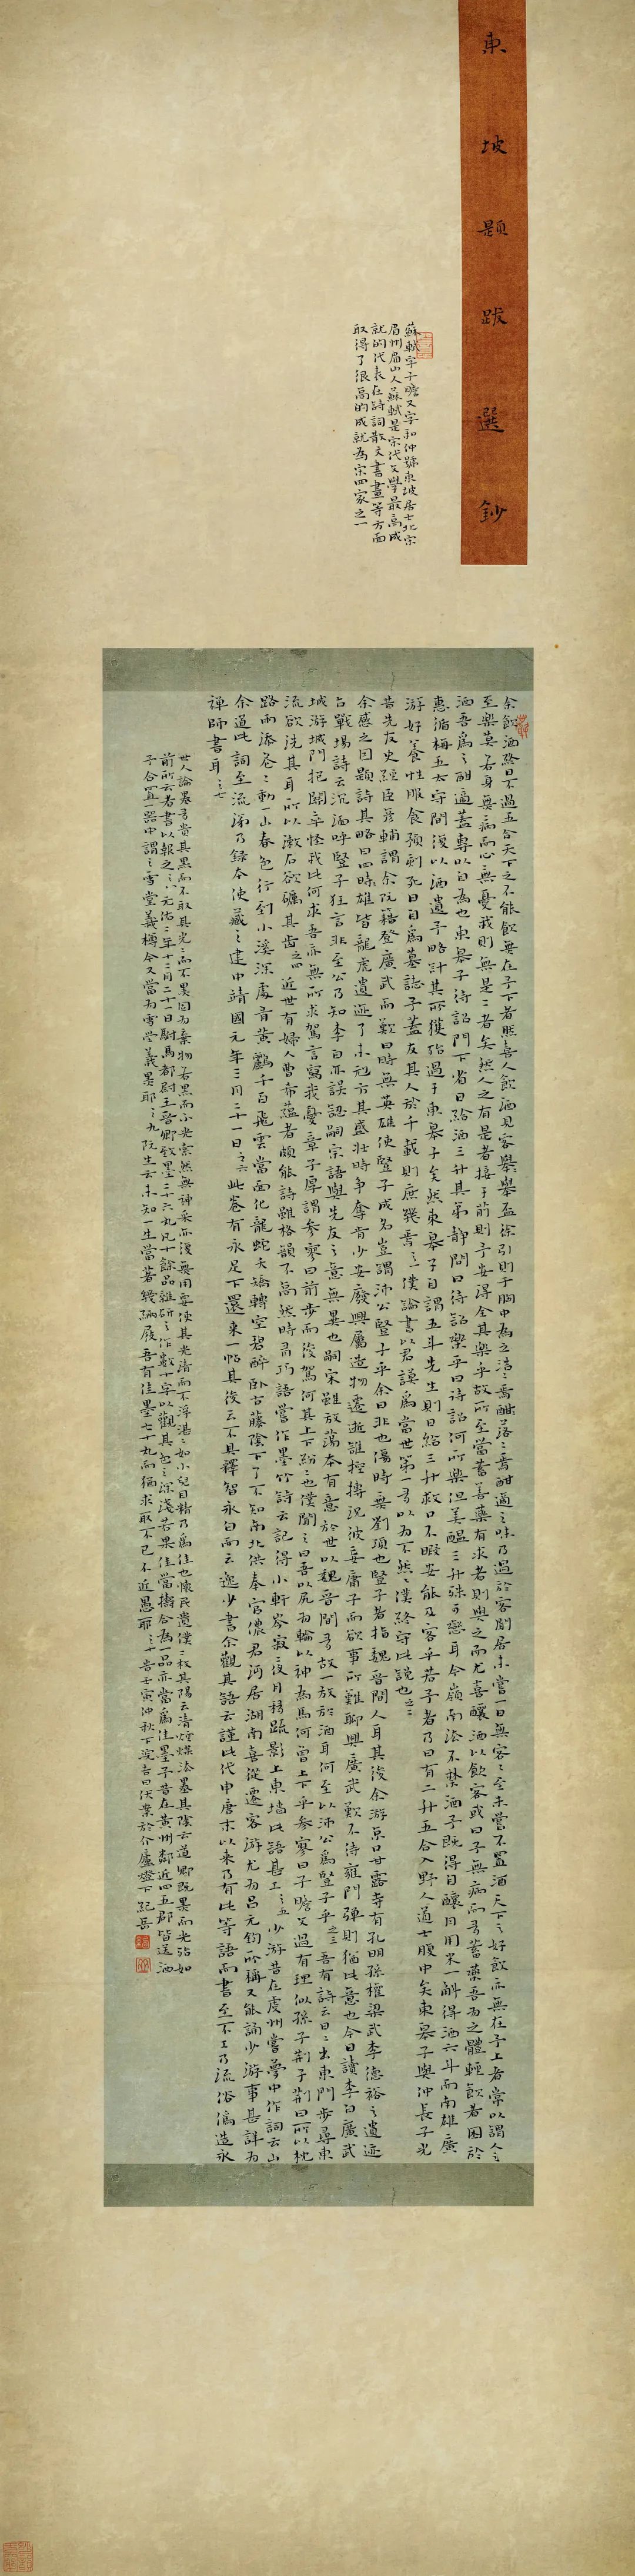 東坡題跋選鈔
蘇軾字子瞻又字和仲號東坡居士北宋
眉州眉山人蘇軾是宋代文學最高成
就的代表在詩詞散文書畫等方面
取得了很高的成就為宋四家之一
余飲酒終日不過五合天下之不能飲無在予下者然喜人飲酒見客舉杯徐引則予胸中為之浩浩焉酣適之味乃過於客閒居未嘗一日無客客至未嘗不置酒天下之好飲亦無在予上者常以謂人之
至樂莫若身無病而心無憂我則無是二者矣然人之有是者接于前則予安得全其樂乎故所至當蓄善藥有求者則與之而尤喜釀酒以飲客或曰子無病而多蓄藥不飲而多釀酒
酒吾為之酣適蓋專以自為也東皋子待詔門下省日給酒三升其弟靜問曰待詔樂乎曰待詔何所樂但美醞三升殊可戀耳今嶺南法不禁酒予既得自釀月用米一斛得酒六斗而南雄廣
惠循梅五太守間復以酒遺予略計其所獲殆過于東皋子矣然東皋子自謂五斗先生則日給三升救口不暇安能及客乎若予者乃日有二升五合入野人道士腹中矣東皋子與仲長子光
游好養性服食預刻死日自為墓誌予蓋友其人於千載則庶幾焉之一僕論書以君謨為當世第一多以為不然然僕終守此說也之二
昔先友史經臣彥輔謂余阮籍登廣武而歎曰時無英雄使豎子成名豈謂沛公豎子乎余曰非也傷時無劉項也豎子者指魏晉間人耳其後余游京口甘露寺有孔明孫權梁武李德裕之遺迹
余感之因題詩其略曰四時雄皆龍虎遺迹了未刓方其盛壯時爭奪肯少安廢興屬造物遷逝誰控摶況彼妄庸子而欲事所難聊興廣武歎不待雍門彈則猶此意也今日讀李白廣武
古戰場詩云沉酒呼豎子狂言非至公乃知李白亦誤認嗣宗語與先友之意無異也嗣宗雖放蕩本有意於世以魏晉間多故一放於酒耳何至以沛公為豎子乎之三吾有詩云日日出東門步尋東
城游城門抱關卒怪我此何求吾亦無所求駕言寫我憂章子厚謂參寥曰前步而後駕何其上下紛紛也僕聞之曰吾以尻為輪以神為馬何曾上下乎參寥曰子瞻文過有理似孫子荊子荊曰所以枕
流欲洗其耳所以漱石欲礪其齒之四近世有婦人曹希蘊者頗能詩雖格韻不高然時有巧語嘗作墨竹詩云記得小軒岑寂夜月移疏影上東墻此語甚工之五少游昔在虔州嘗夢中作詞云山
路雨添花花動一山春色行到小溪深處有黃鸝千百飛雲當面化龍蛇夭矯轉空碧醉臥古藤陰下了不知南北供奉官儂君沔居湖南喜從遷客游尤為呂元鈞所稱又能誦少游事甚詳為
余道此詞至流涕乃錄本使藏之建中靖國元年三月二十一日之六此卷有永足下還來一帖其後云不具釋智永白而云逸少書余觀其語云謹此代申唐末以來乃有此等語而書至不工乃流俗偽造永
禪師書耳之七
世人論墨多貴其黑而不取其光光而不黑固為棄物若黑而不光索然無神采亦復無用要使其光清而不浮湛湛如小兒目精乃為佳也懷民遺僕二枚其陽云清煙煤法墨其陰云道卿既黑而光殆如
前所云者書以報之之八元祐二年十二月二十一日駙馬都尉王晉卿致墨二十六丸凡十餘品雜研之作數十字以觀其色之深淺若果佳當擣合為一品亦當為佳墨予昔在黃州鄰近四五郡皆送酒
予合置一器中謂之雪堂義樽今又當為雪堂義墨耶之九阮生云未知一生當著幾緉屐吾有佳墨七十丸而猶求取不已不近愚耶之十昔壬寅仲秋下浣吉日伏案於介廬燈下紀岳